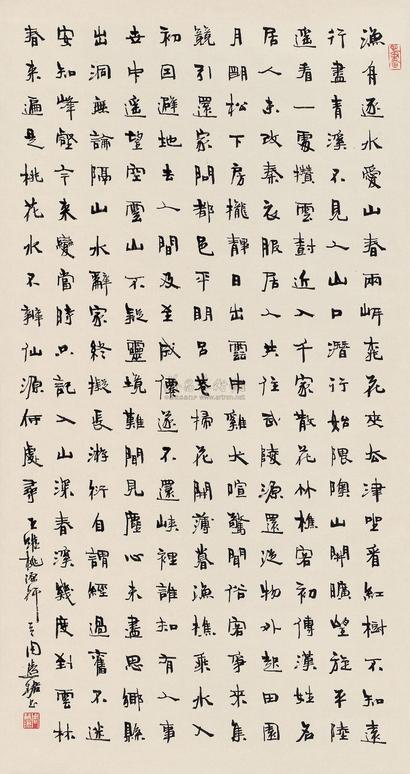 漁舟逐水愛山春兩岸桃花夾古津坐看紅樹不知遠
行盡青溪不見人山口潛行始隈隩山開曠望旋平陸
遙看一處攢雲樹近入千家散花竹樵客初傳漢姓名
居人未改秦衣服居人共住武陵源還從物外起田園
月明松下房櫳靜日出雲中雞犬喧驚聞俗客爭來集
競引還家問都邑平明閭巷掃花開薄暮漁樵乘水入
初因避地去人間及至成僊遂不還峽裡誰知有人事
世中遙望空雲山不疑靈境難聞見塵心未盡思鄉縣
出洞無論隔山水辭家終擬長游衍自謂經過舊不迷
安知峰壑今來變當時只記入山深春溪幾度到雲林
春來遍是桃花水不辨仙源何處尋 王維桃源行